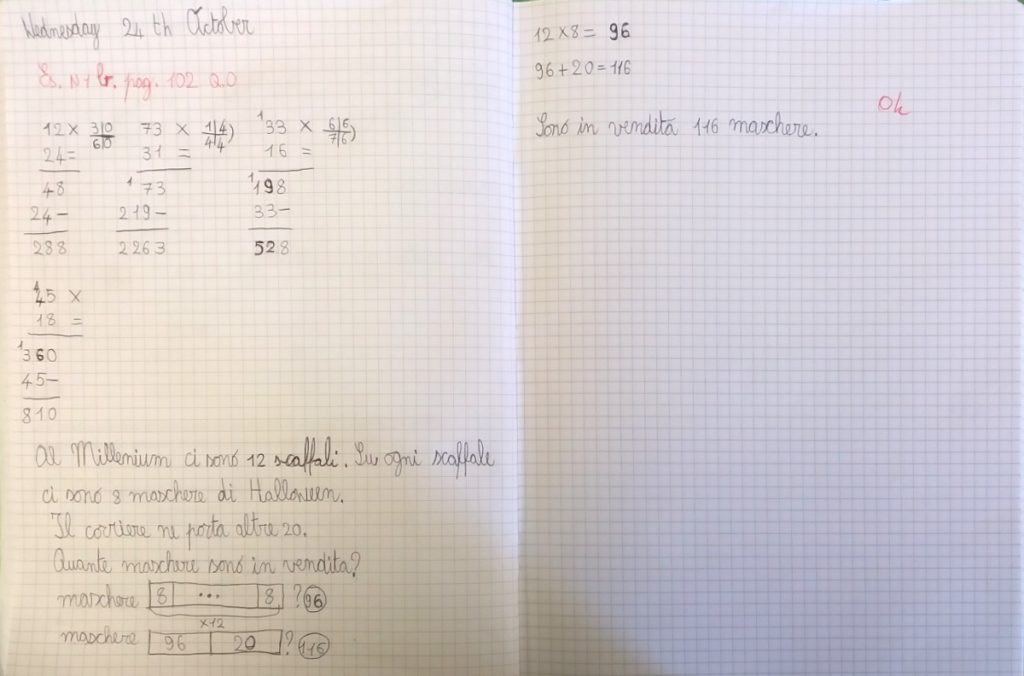 Wednesday 24 th October
Es. N 1 lr. pag. 102 Q.O
12 × 3|0 73 × 1|4) 33 × 6|6)
24= 6|0 31 = 4|4 16 = 7|6
48 173 1198
24- 219- 33-
288 2263 528
45 ×
18 =
1360
45-
810
Al Millenium ci sono 12 scaffali. Su ogni scaffale
ci sono 8 maschere di Halloween.
Il corriere ne porta altre 20.
Quante maschere sono in vendita?
maschere 8 ... 8 ? 96
×12
maschere 96 20 ? 116
12 × 8 = 96
96 + 20 = 116
Ok
Sono in vendita 116 maschere.